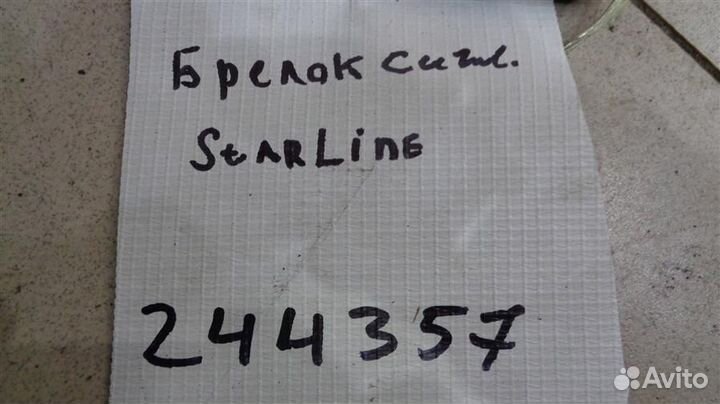 Брелок сигн.
StarLine
244357
Avito